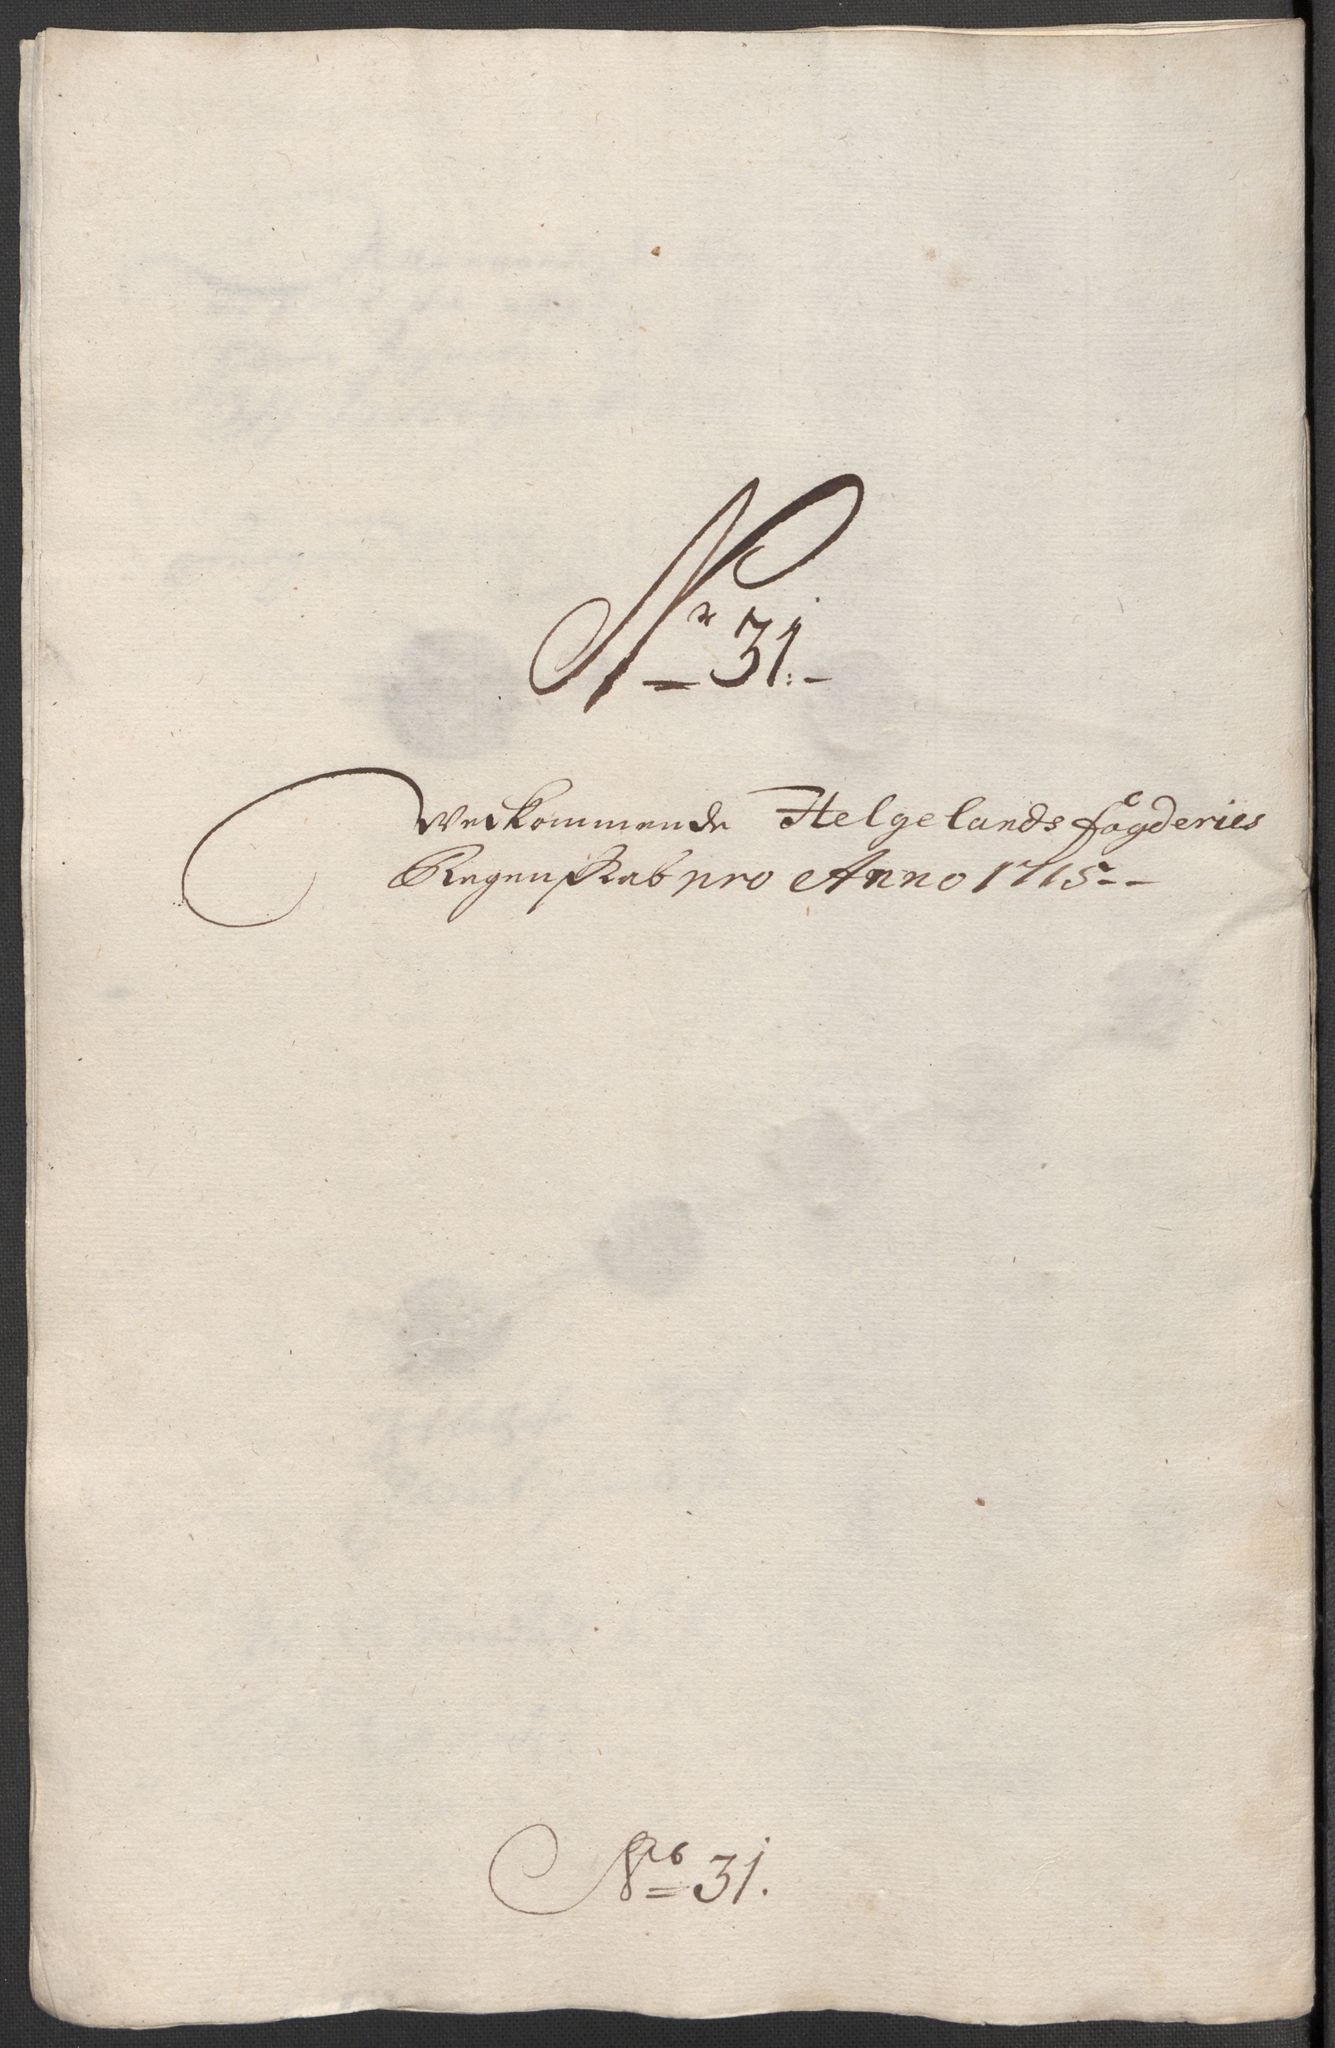 Nr 31.
Vedkommende Helgelands fögderies
Regenskab pro Anno 1715
No 31.